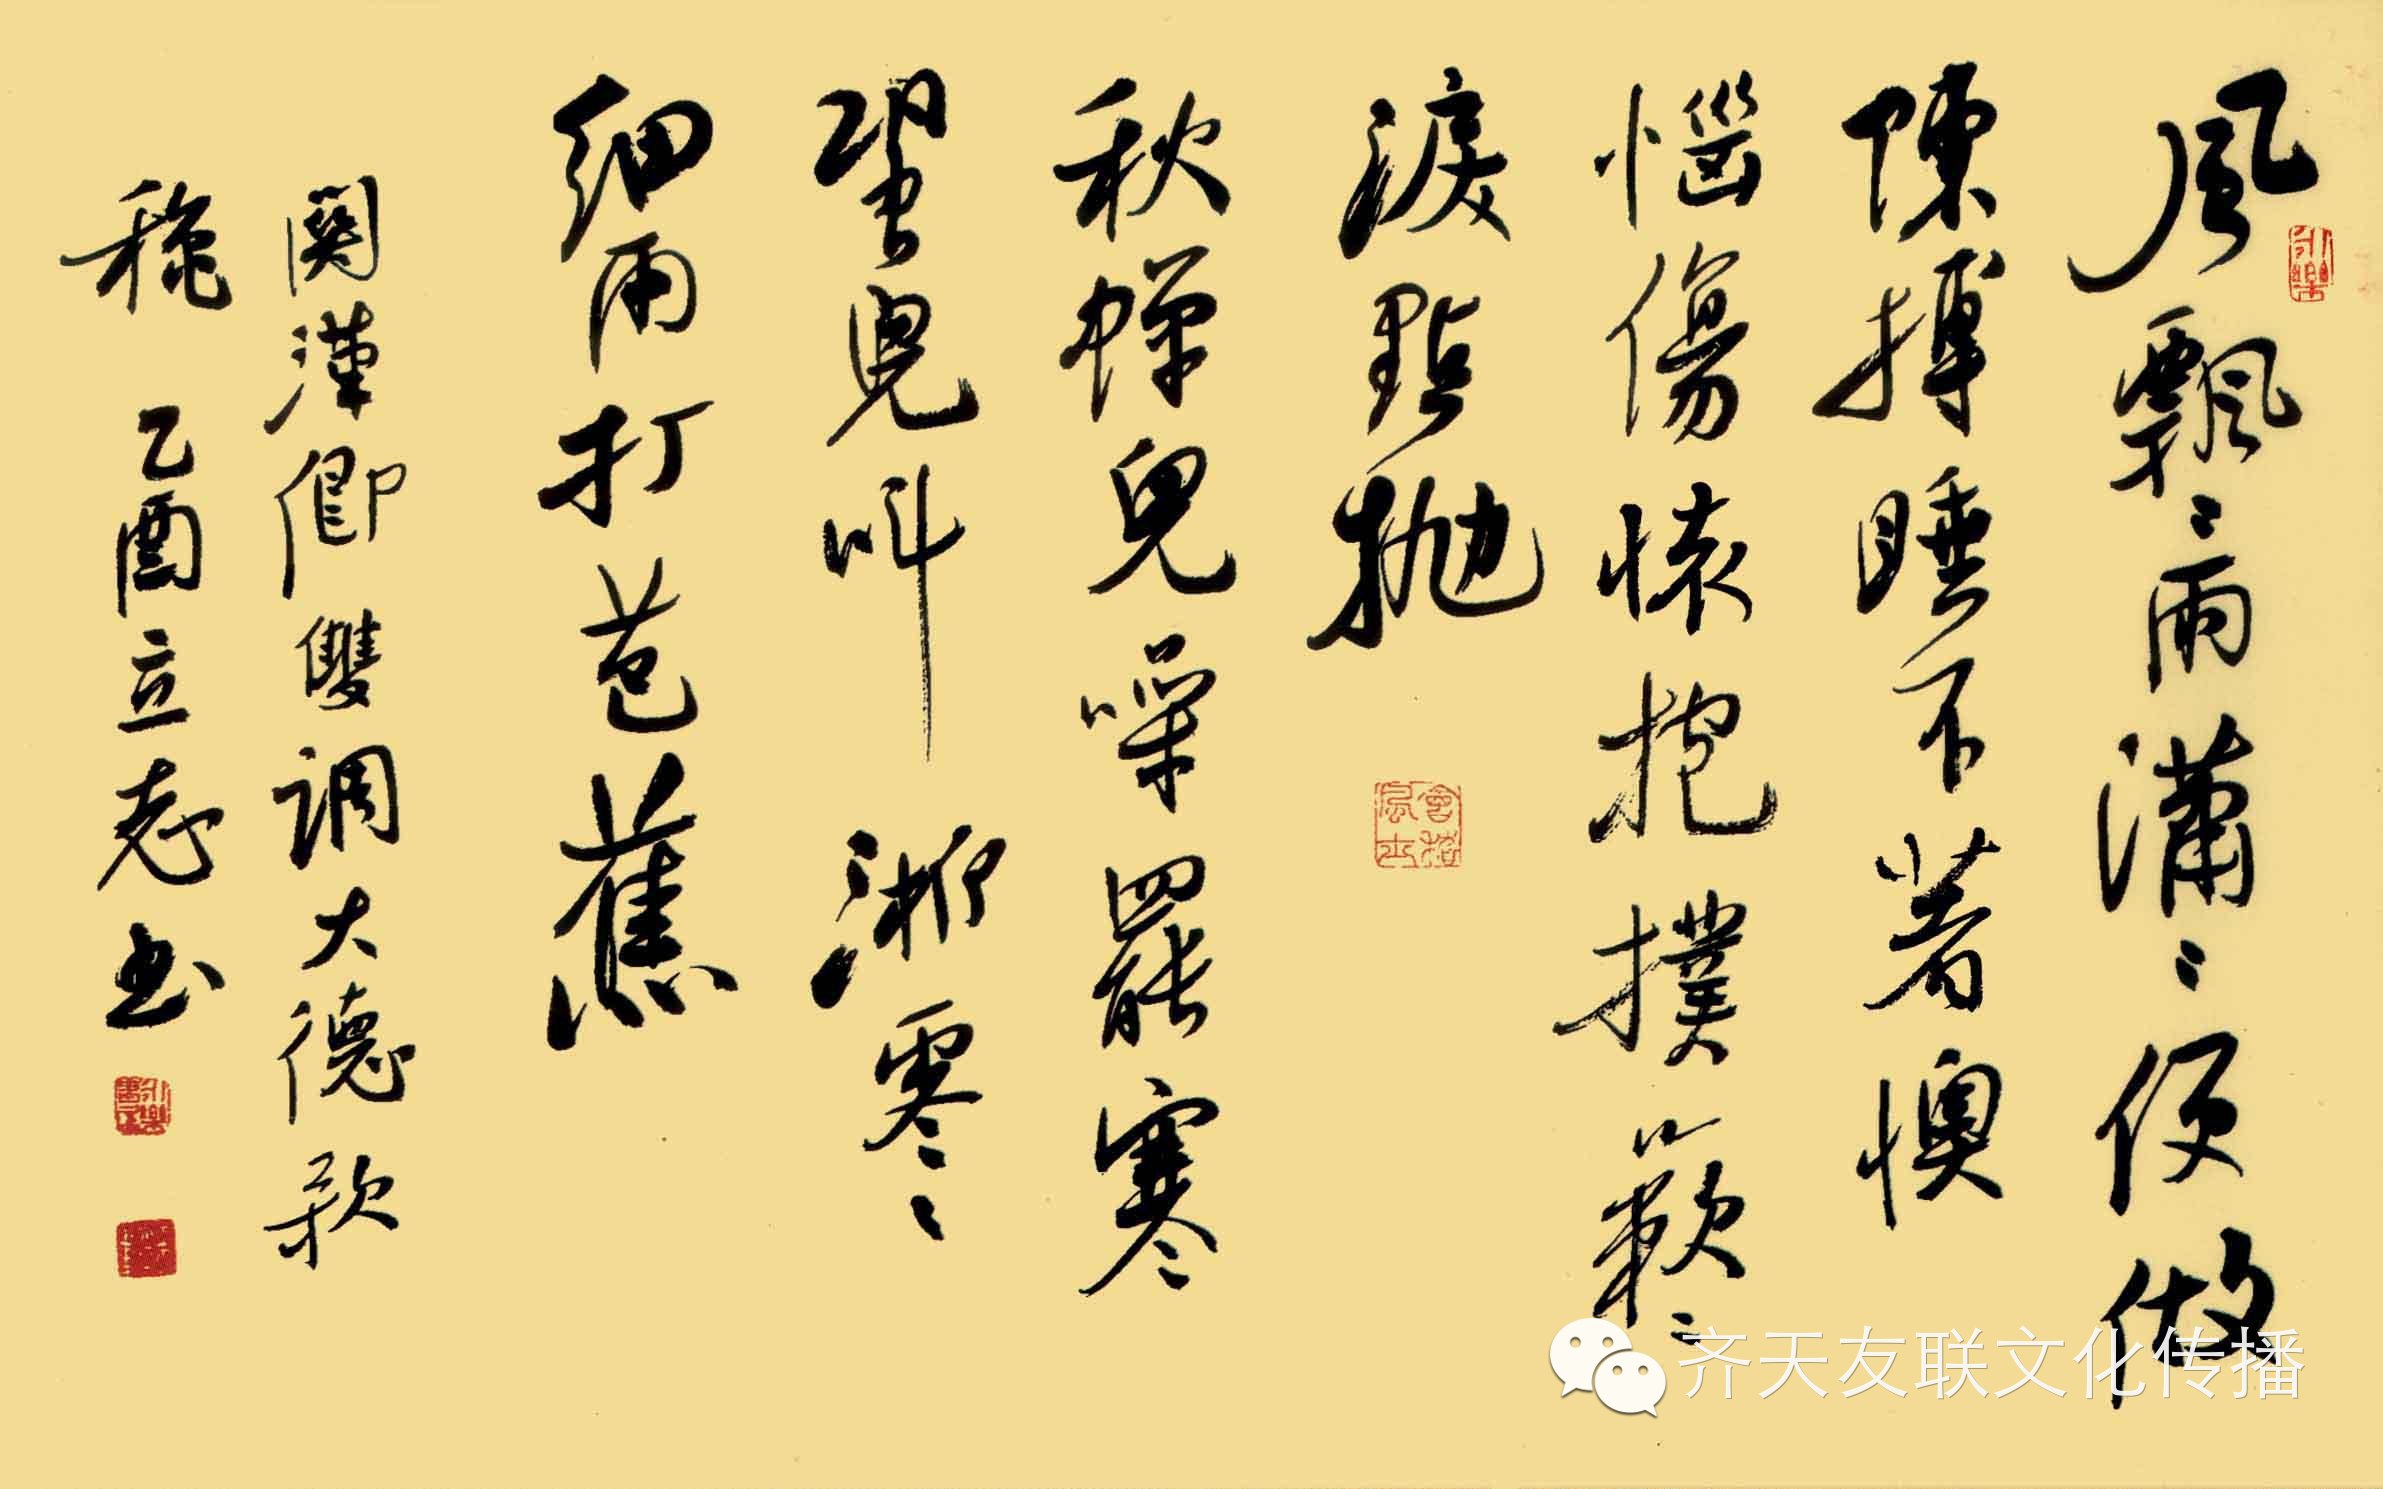 風飄〻雨瀟〻便做
陳摶睡不著懊
惱傷懷抱撲簌〻
淚點抛
秋蟬兒噪罷寒
蛩兒叫淅零〻
細雨打芭蕉
關漢卿雙調大德歌
秌 乙酉立志书
永樂
齐天友联文化传播